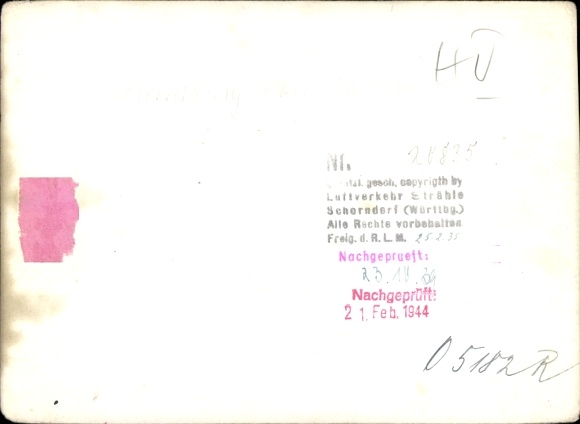 HV
Nr. 20835
gesch. copyrigth by
Luftverkehr Strähle
Schorndorf (Württbg.)
Alle Rechte vorbehalten
Freig. d. R. L. M. 25.2.35
Nachgeprueft:
Nachgeprüft:
21. Feb. 1944
O 5182 R